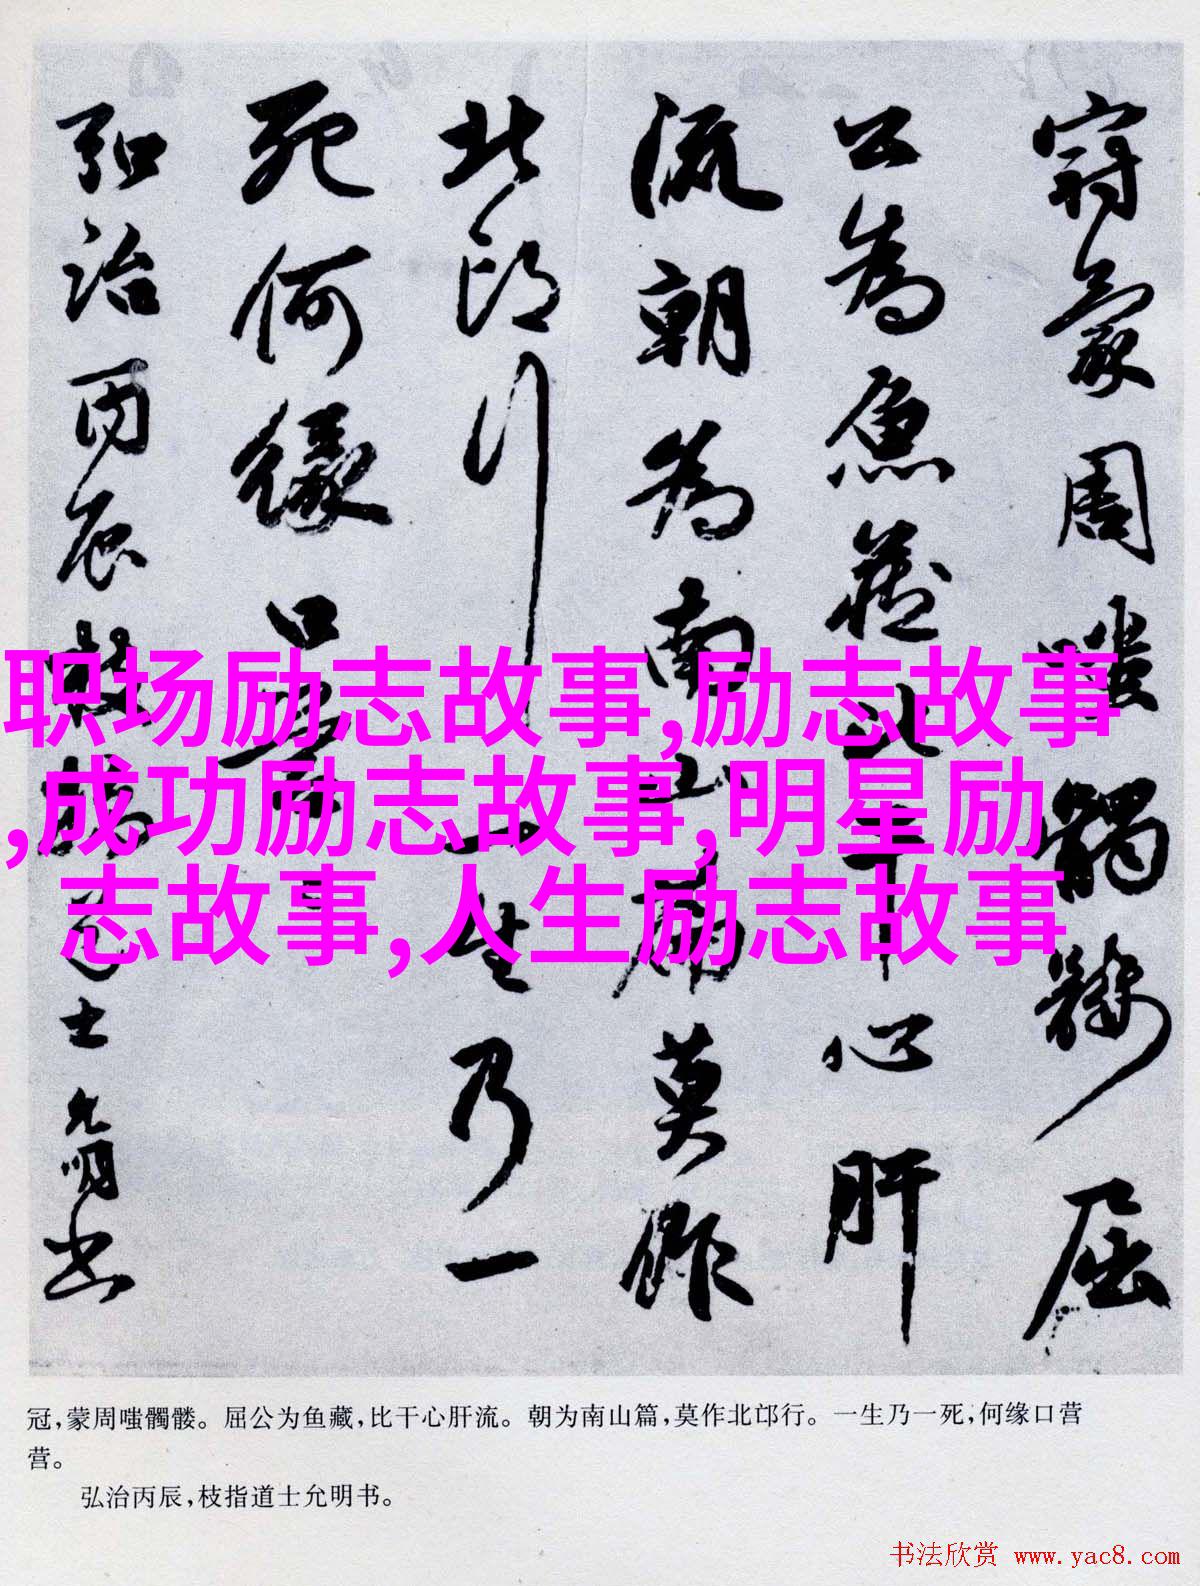 冠蒙周嗤髑髏屈
公為魚藏比干心肝
流朝為南山篇莫作
北邙行一生乃一
死何緣口營營
弘治丙辰枝指道士允明書
职场励志故事,励志故事
,成功励志故事,明星励
志故事,人生励志故事
冠，蒙周嗤髑髅。屈公为鱼藏，比干心肝流。朝为南山篇，莫作北邙行。一生乃一死，何缘口营
营。
弘治丙辰，枝指道士允明书。
书法欣赏 www.yac8.com